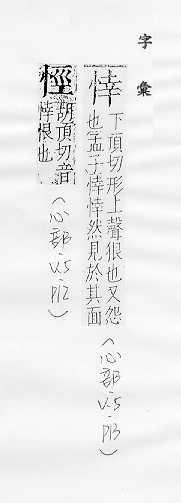 字彙
悻下頂切形上聲佷也又怨
也孟子悻悻然見於其面
(心部·V.5·P13)
悭胡頂切音
悻恨也
(心部·V.5·P12)